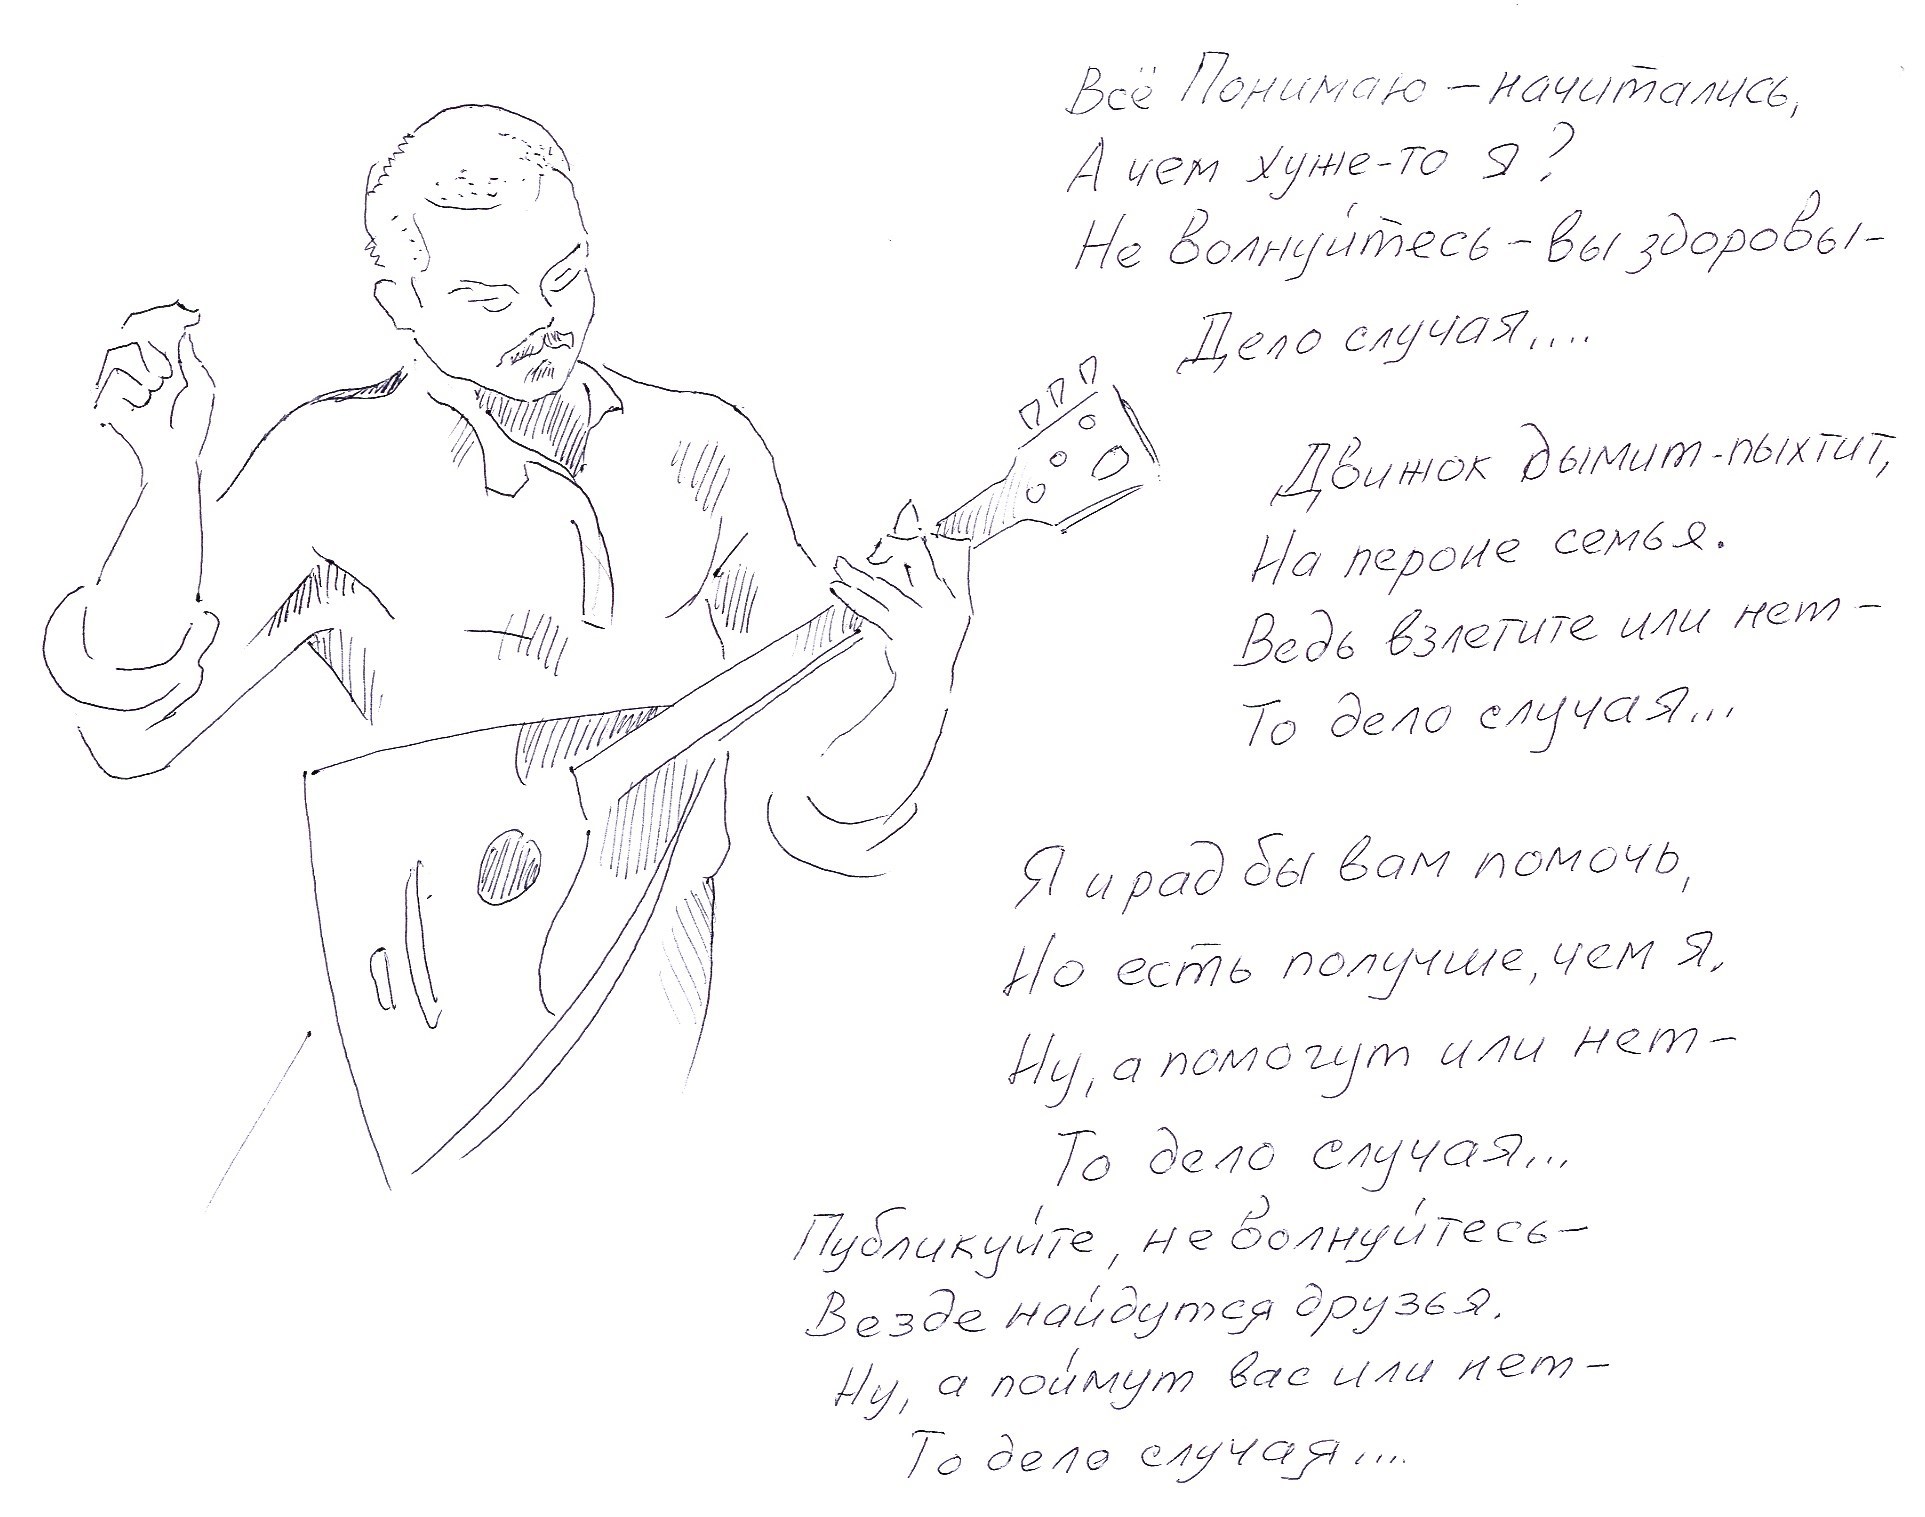 Всё Понимаю – начитались,
А чем хуже-то я?
Не волнуйтесь – вы здоровы –
Дело случая....
Движок дымит-пыхтит,
На пероне семья.
Ведь взлетите или нет –
То дело случая...
Я и рад бы вам помочь,
Но есть получше, чем я.
Ну, а помогут или нет –
То дело случая...
Публикуйте, не волнуйтесь –
Везде найдутся друзья.
Ну, а поймут вас или нет –
То дело случая....